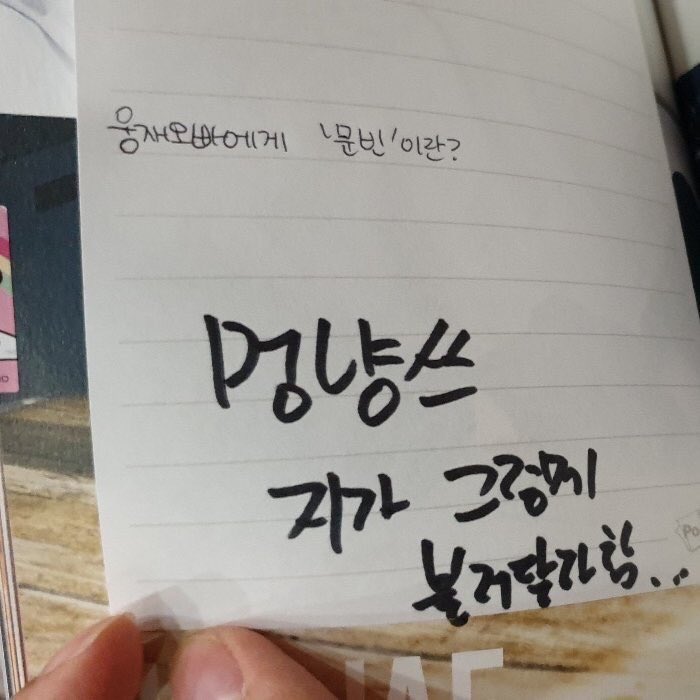 웅재오빠에게 '문빈'이란?
멍냥쓰
지가 그렇게
불러달라함...